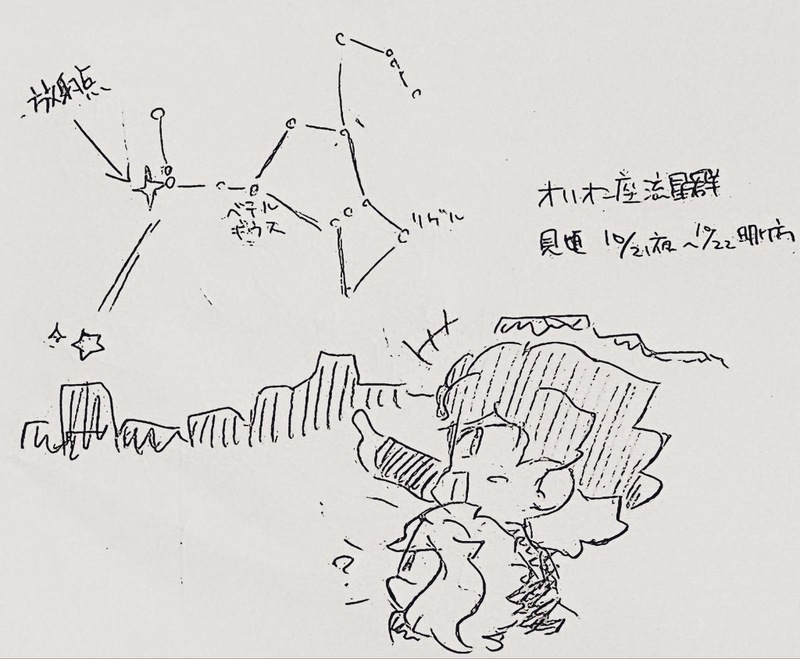 放射点
ベテル
ギウス
リゲル
オリオン座流星群
見頃 10/21夜〜10/22明け方
?